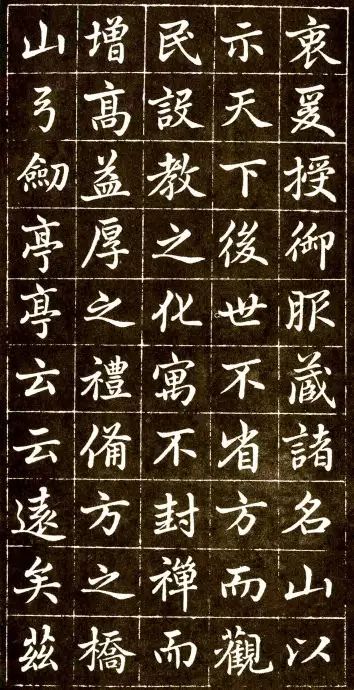 衷爰授御服蔵諸名山以
示天下後世不省方而觀
民設教之化寓不封禅而
增髙益厚之禮俻方之橋
山弓劒亭亭云云遠矣茲